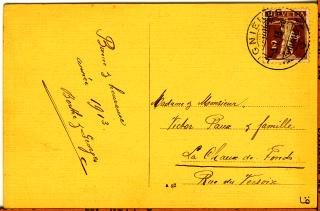 Bonne & heureuse
année 1913
Berthe & Georges
Madame & Monsieur
Victor Paux & famille
La Chaux-de-Fonds
Rue du Versoix